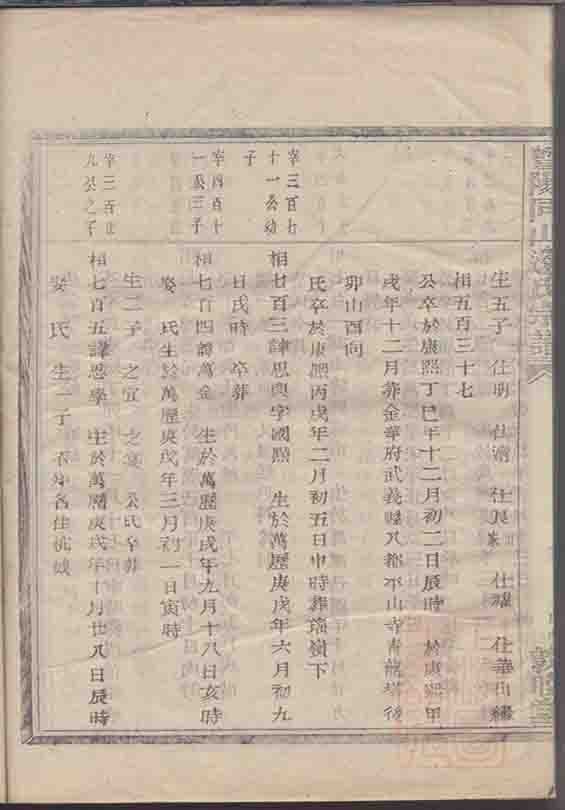 暨陽同山邊氏宗譜
生五子 仕明 仕 仕良 出家 仕 仕華出繼
相五百三十七
公卒於康熙丁巳年十二月初二日辰時 於康熙甲
戌年十二月葬金華府武義縣八都不山寺青龍塔後
卯山酉向
氏卒於康熙丙戌年二月初五日巾時葬瑞嶺下
宰三百七
十一公幼
子
相七百三諱思與字國熙 生於萬歷庚戌年六月初九
日戌時 卒葬
宰四百十
一公三子
相七百四諱萬金 生於萬歷庚戌年九月十八日亥時
娶 氏生於萬歷庚戌年三月初一日寅時
生二子 之宜 之 公氏卒葬
宰三百廿
九公之子
相七百五諱思學 生於萬曆庚戌年十月廿八日辰時
娶 氏 生一子 不知名住杭城